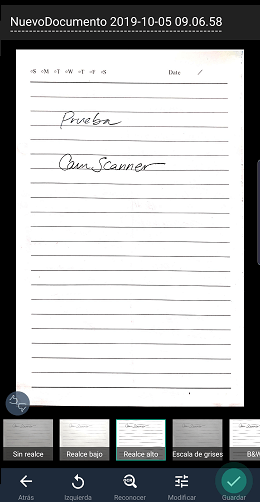 NuevoDocumento 2019-10-05 09.06.58
S M T W T F S Date /
Prueba
Cam Scanner
Sin realce Realce bajo Realce alto Escala de grises B&W
Atrás Izquierda Reconocer Modificar Guardar